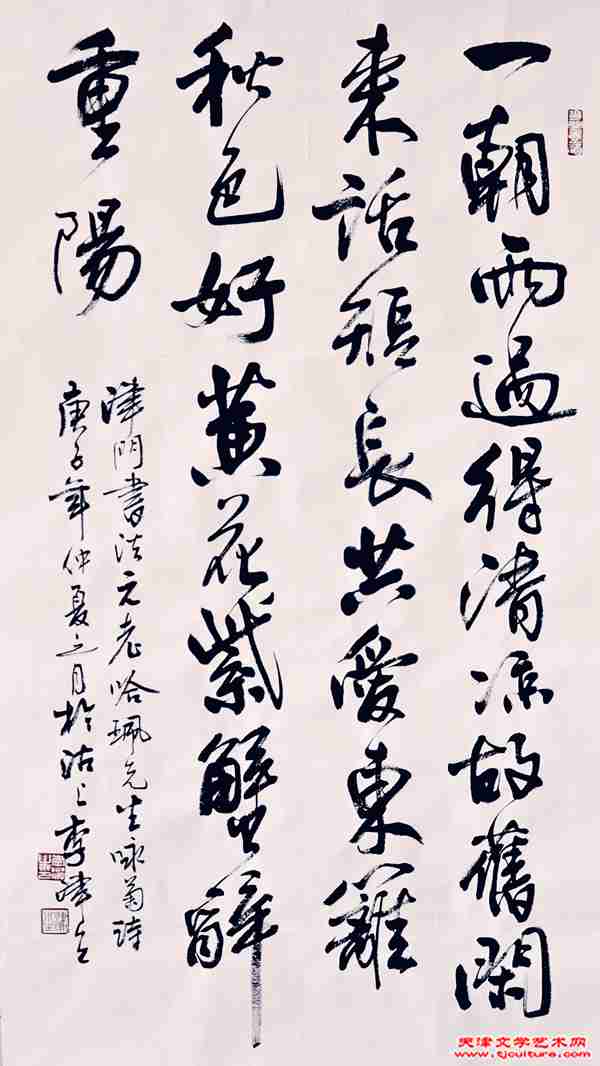 一朝雨過得清涼故舊閑
來話短長共愛東籬
秋色好黃花紫蟹醉
重陽
津門書法元老哈珮先生詠菊詩
庚子年仲夏之月於沽上李
天津文学艺术网
www.tjculture.com